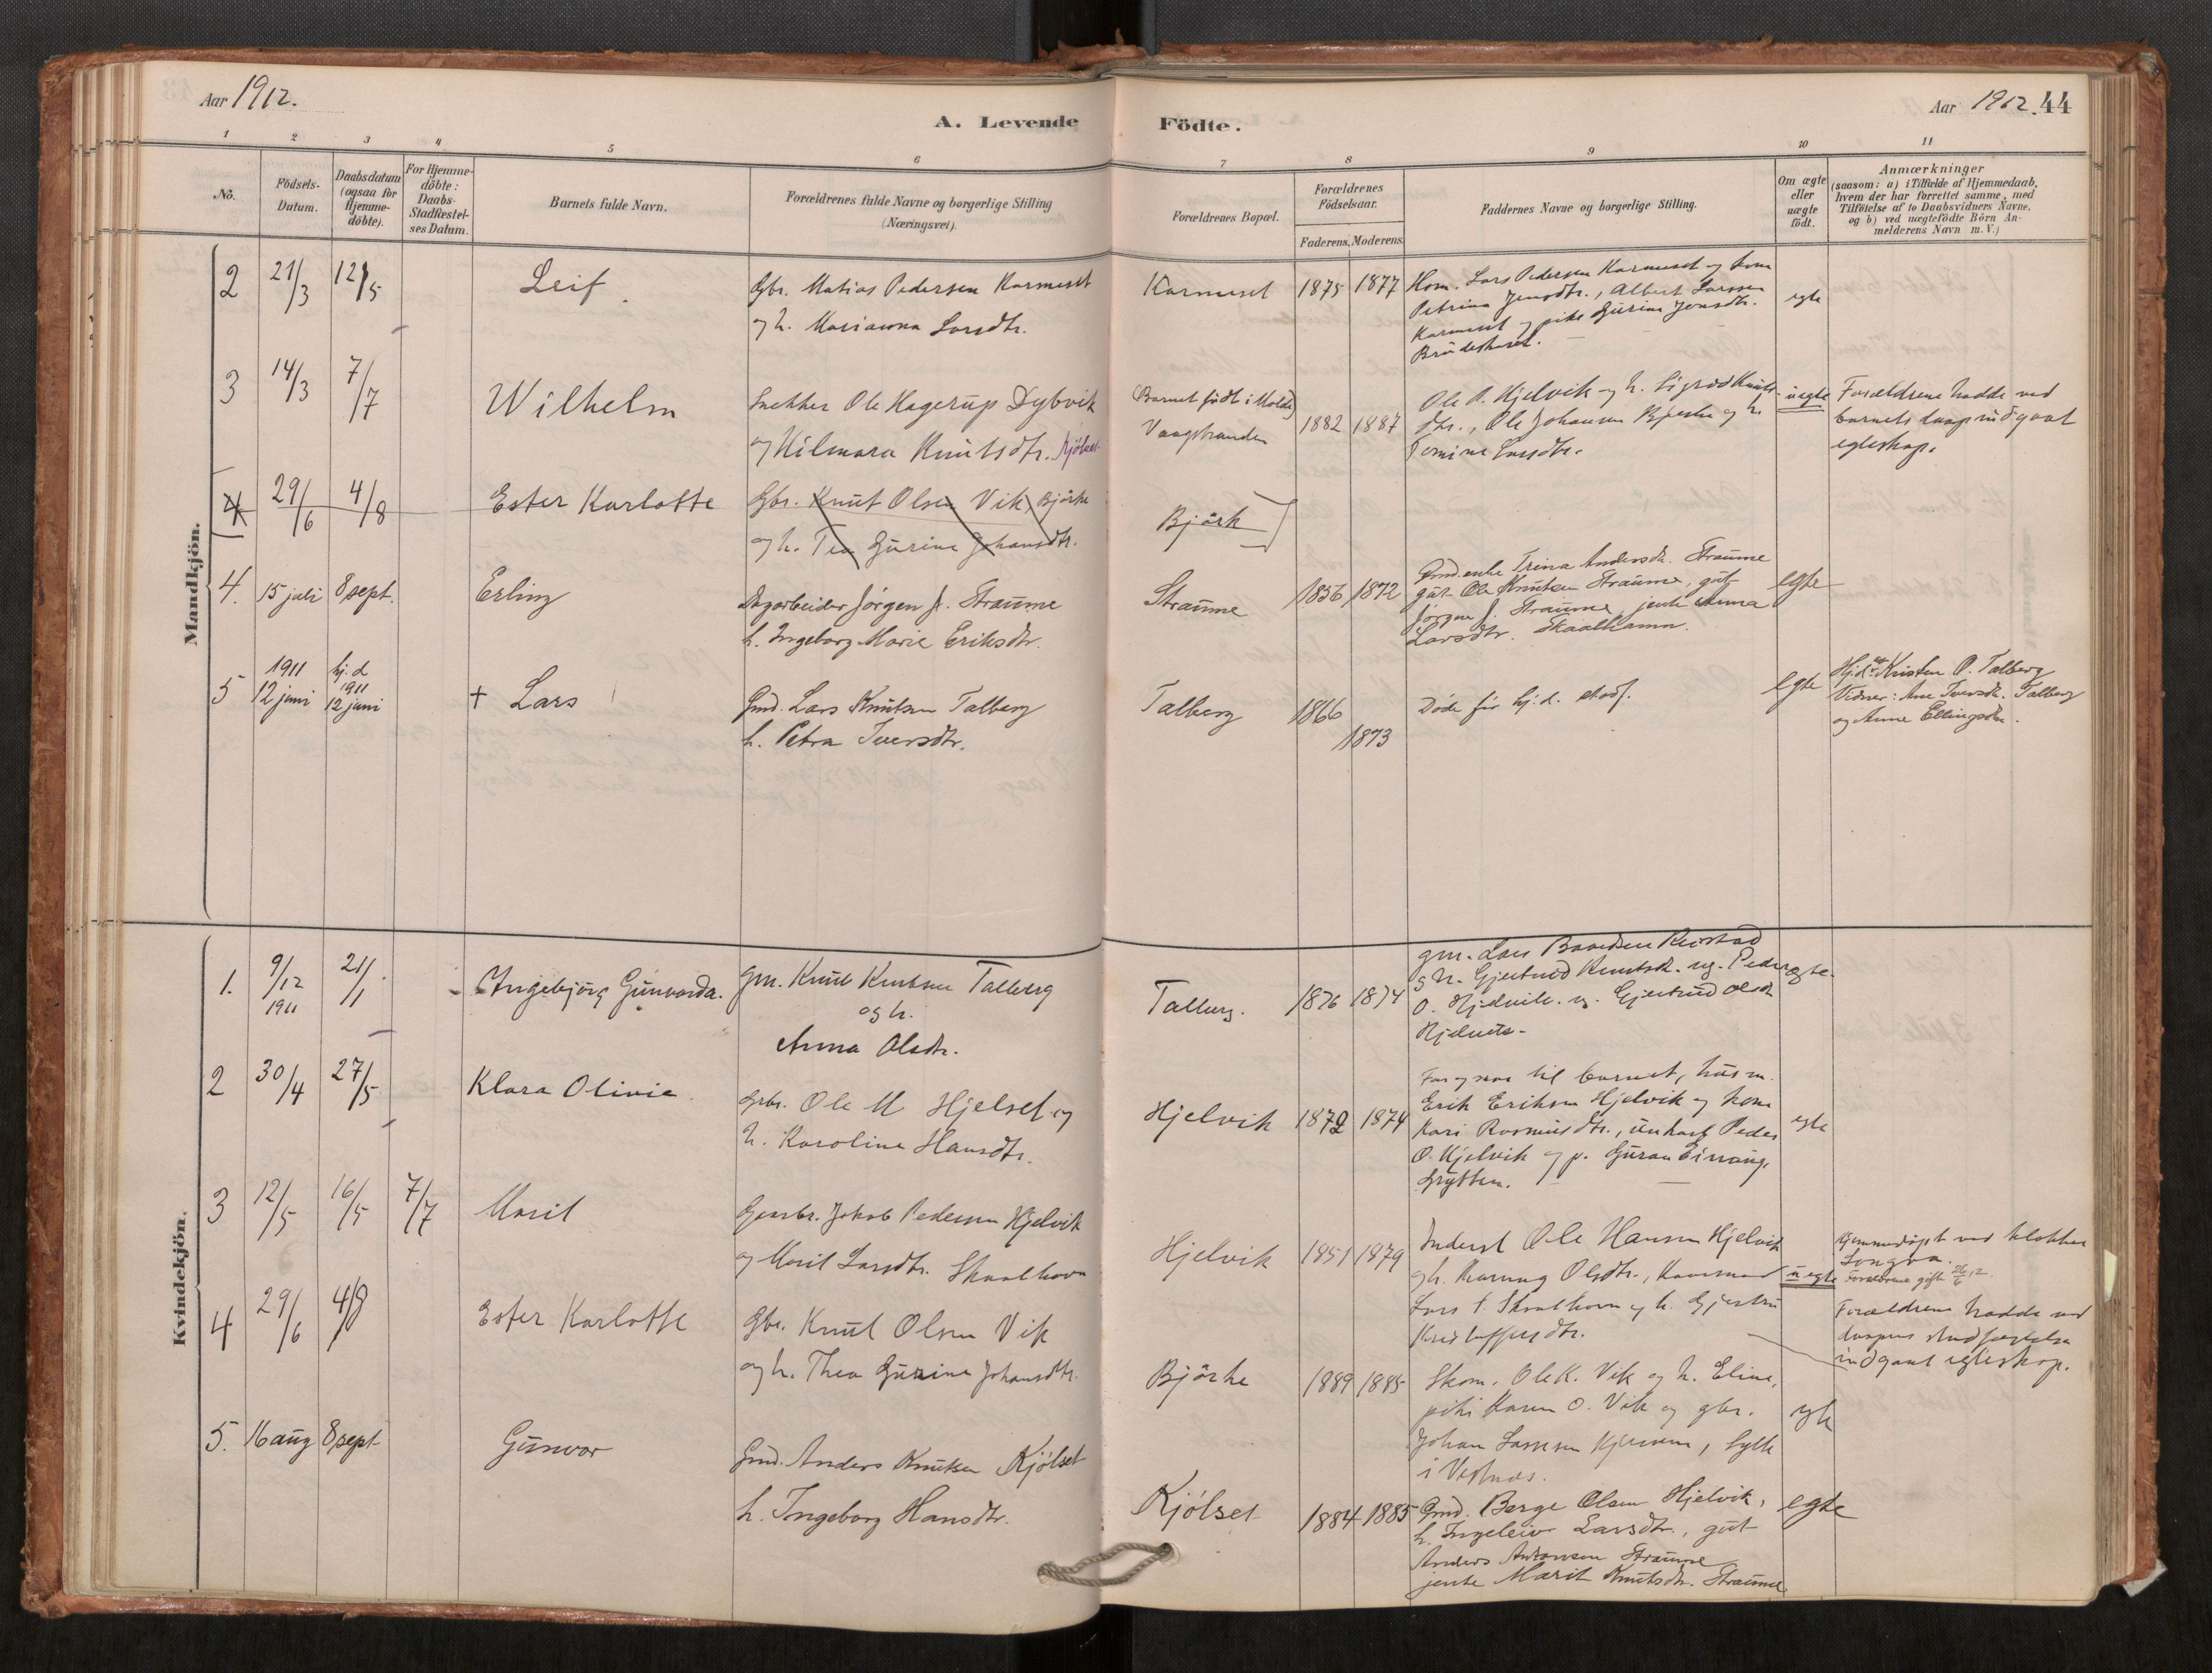 Aar 1912.
A. Levende Födte.
Aar 1912. 44
1 2 3 4 5 6 7 8 9 10 11
No.
Födsels-Datum.
Daabsdatum (ogsaa for Hjemme-döbte).
For Hjemme-döbte: Daabs-Stadfæstel-ses Datum.
Barnets fulde Navn.
Forældrenes fulde Navne og borgerlige Stilling
(Næringsvei).
Forældrenes Bopæl.
Forældrenes Födselsaar.
Faderens. Moderens.
Faddernes Navne og borgerlige Stilling.
Om ægte eller uægte födt.
Anmærkninger
(saasom: a) i Tilfælde af Hjemmedaab,
hvem der har forrettet samme, med
Tilföielse af to Daabsvidners Navne,
og b) ved uægtefödte Börn An-
melderens Navn m. V.)
Mandkjön.
2 21/3 12/5 Leif.
Gbr. Matias Pedersen Karmeset
og h. Marianna Larsdtr.
Karmeset 1875 1877
Hom. Lars Pedersen Karmeset og kona
Petrina Jensdtr., Albert Larssen
Karmeset og pike Gurine Jensdtr.
egte
3 14/3 7/7 Wilhelm
Snekker Ole Hagerup Dybvik
og Hilmara Knutsdtr. Kjölset
Barnet født i Molde
Vaagstranden 1882 1887
Ole P. Hjelvik og h. Sigrid Knuts-
dtr., Ole Johansen Bjerke og h.
Larsdtr.
uegte
Forældrene hadde ved
barnets daap indgaat
egteskap.
4 29/6 4/8 Ester Karlotte
Gbr. Knut Olsen Vik, Björke
og h. Tea Gurine Johansdtr.
Björk
4. 15 juli 8 sept. Erling
Dagarbeider Jørgen J. Straume
h. Ingeborg Marie Eriksdtr.
Straume 1856 1872
Gmd.enke Trina Andersdtr. Straume
gut Ole Knutsen Straume, gut
Jørgen J. Straume, jente Anna
Larsdtr. Skaalhamn.
egte
5 1911 12 juni hj.d 1911 12 juni † Lars
Gmd. Lars Knutsen Talberg
h. Petra Iversdtr.
Talberg 1866 1873
Døde før hj.d. stadf.
egte
Hjd. av Kristen P. Talberg
Vidner: Ane Iversdtr. Talberg
og Anne Ellingsdtr.
Kvindekjön.
1. 9/12 1911 21/1. Ingebjörg Gunvarda.
Gm. Knut Knutsen Talberg
og h.
Anna Olsdtr.
Talberg. 1876 1874
gm. Lars Baardsen
og h. Gjertrud Knutsdtr. ug. Peder
O. Hjelvik. ug. Gjertrud Olsdtr
egte.
2 30/4 27/5 Klara Olivie.
Gbr. Ole M Hjelset og
h. Karoline Hansdtr.
Hjelvik 1872 1874
Far og mor til barnet, husm.
Erik Eriksen Hjelvik og kone
Kari Rasmusdtr., unkarl Peder
O. Hjelvik og p. Guran
Grytten.
egte
3 12/5 16/5 7/7 Marit
Gaarbr. Jakob Pedersen Hjelvik
og Marit Larsdtr. Skaalhavn
Hjelvik 1851 1879
Inderst Ole Hansen Hjelvik
og h. Olsdtr.,
Lars L. Skaalhavn og h. Gjertru
Kristoffersdtr.
uegte
Hjemmedöpt ved klokker
Songva.
Forældrene gift 26/6 12.
Forældrene hadde ved
daapens stadfæstelse
indgaat egteskap.
4 29/6 4/8 Ester Karlotte
Gbr. Knut Olsen Vik
og h. Thea Gurine Johansdtr.
Björke 1889 1885
Skom. Ole K. Vik og h. Eline,
pike Karen O. Vik og gbr.
Johan Larssen
i Vestnes.
egte
5. 16 aug 8 sept. Gunvor
Gmd. Anders Knutsen Kjölset
h. Ingeborg Hansdtr.
Kjölset 1884 1885
Gmd. Berge Olsen Hjelvik,
h. Ingeleiv Larsdtr., gut
Anders Antonsen Straume
jente Marit Knutsdtr. Straume
egte